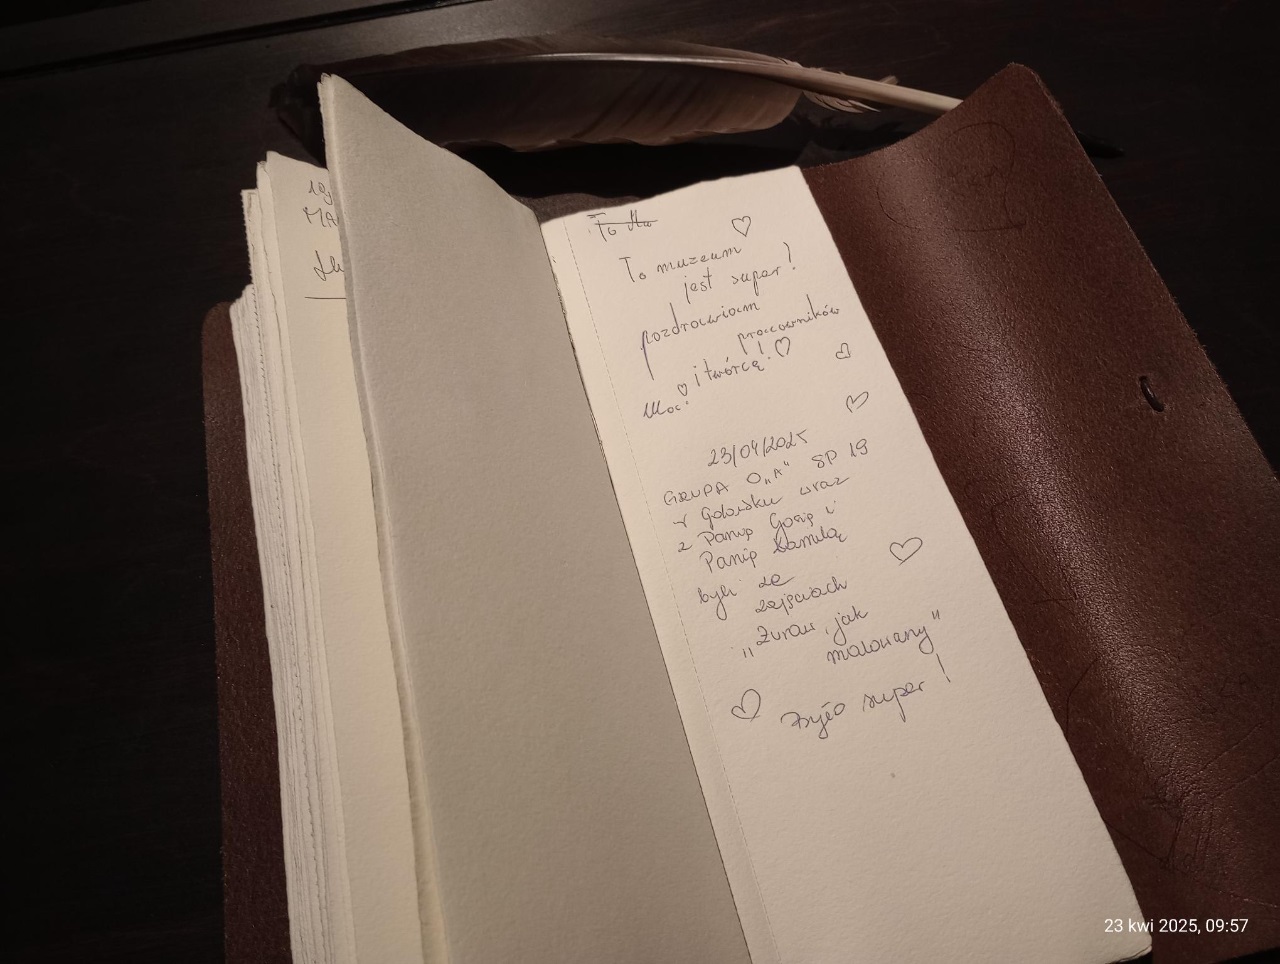 19
MA
To dla
To muzeum
jest super!
pozdrawiam
pracowników
i twórcą!
23/04/2025
GRUPA 0 „A" SP 19
w Gdańsku wraz
z Panią Gosią i
Panią Kamilą
byli ze
zajęciach
„Żuraw, jak
malowany"
Było super!
23 kwi 2025, 09:57